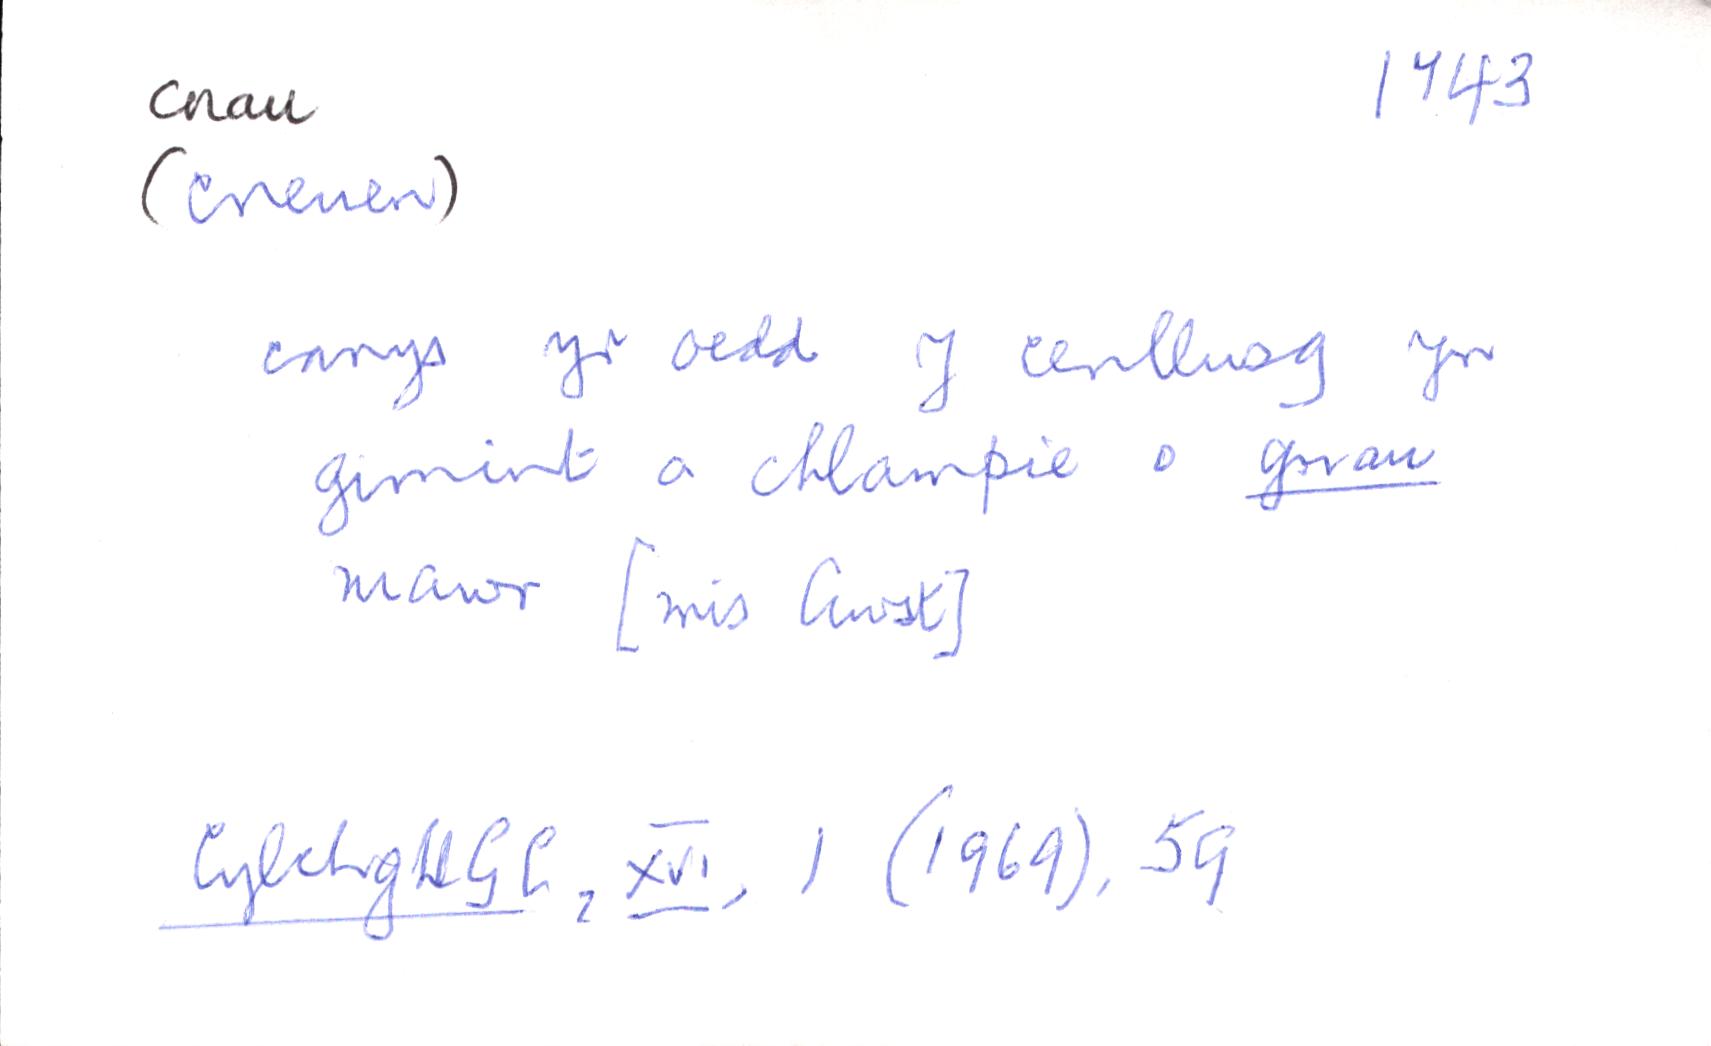 cnau
1743
(cneuen)
canys yr oedd y cenllusg yn
gimint a chlampie o gnau
mawr [mis Awst]
CylchgLlGC, XVI, 1 (1969), 59